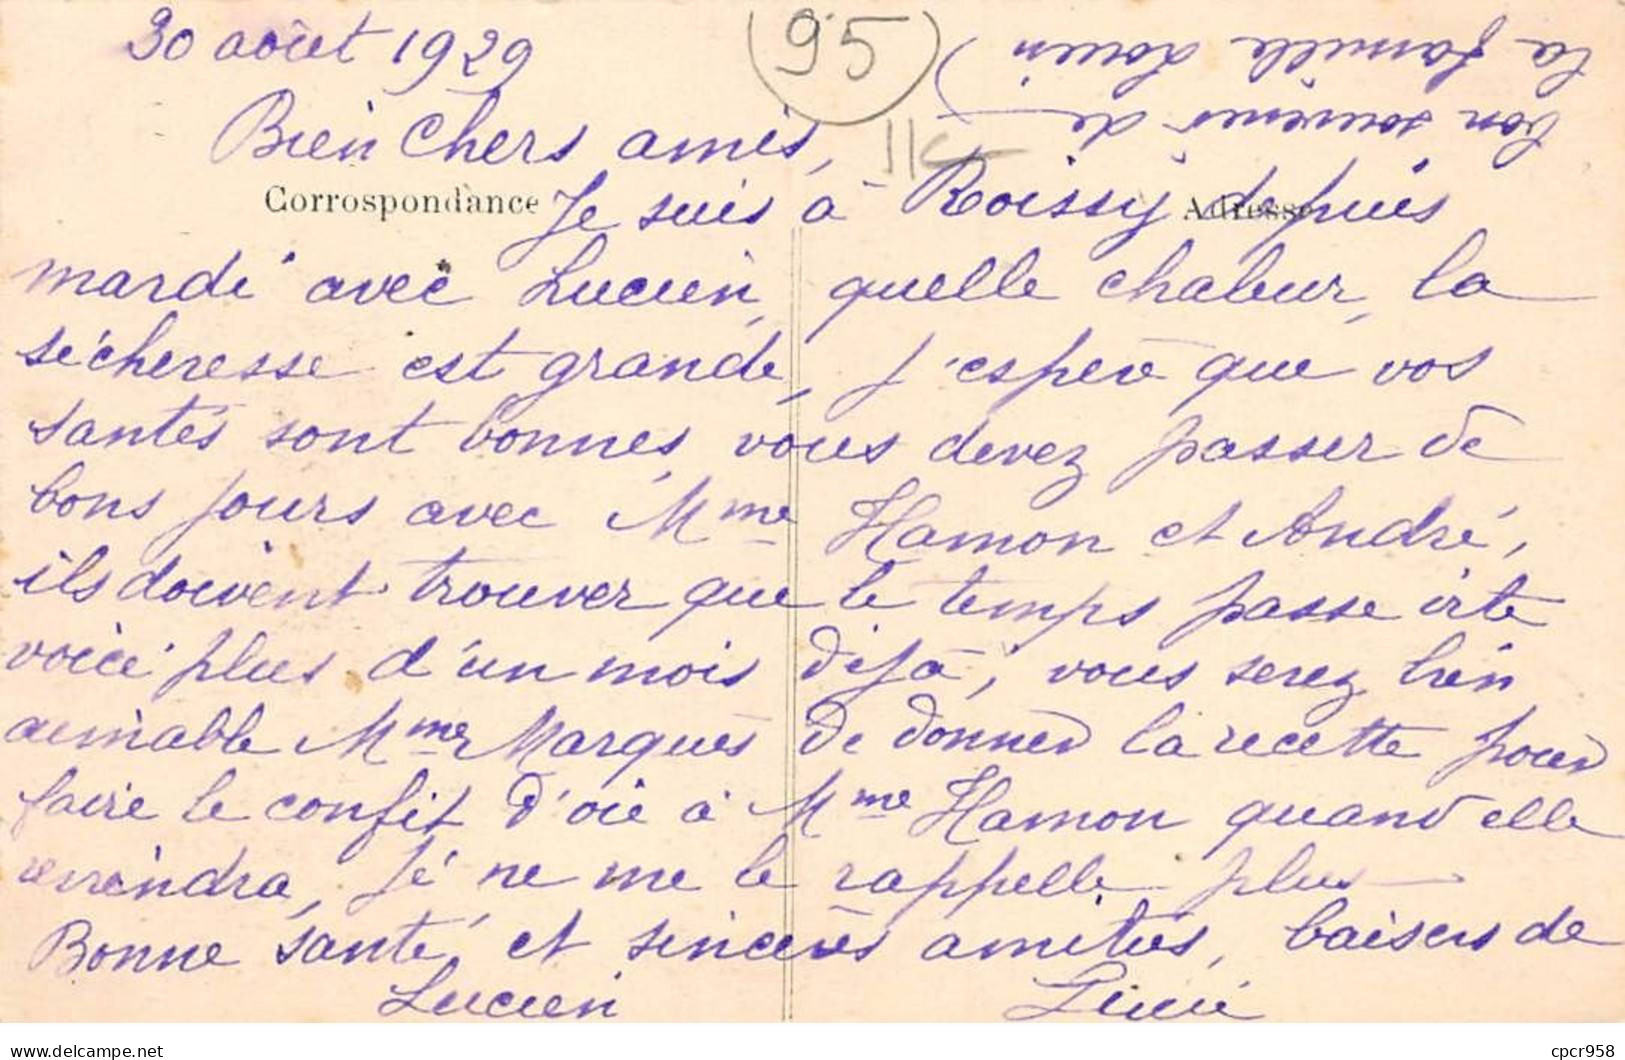 30 août 1929
95
Bien Chers amis,
Corrospondance
Adresse
Je suis à Roissy depuis
mardi avec Lucien, quelle chaleur, la
sécheresse est grande, j'espère que vos
santés sont bonnes, vous devez passer de
bons jours avec Mme Hamon et André,
ils doivent trouver que le temps passe vite
voici plus d'un mois déjà, vous serez bien
aimable Mme Marquès de donner la recette pour
faire le confit d'oie à Mme Hamon quand elle
reviendra, je ne me le rappelle plus
Bonne santé et sincères amitiés, baisers de
Lucien Lucie
bon souvenir de
la famille Louin
delcampe.net
cpcr958